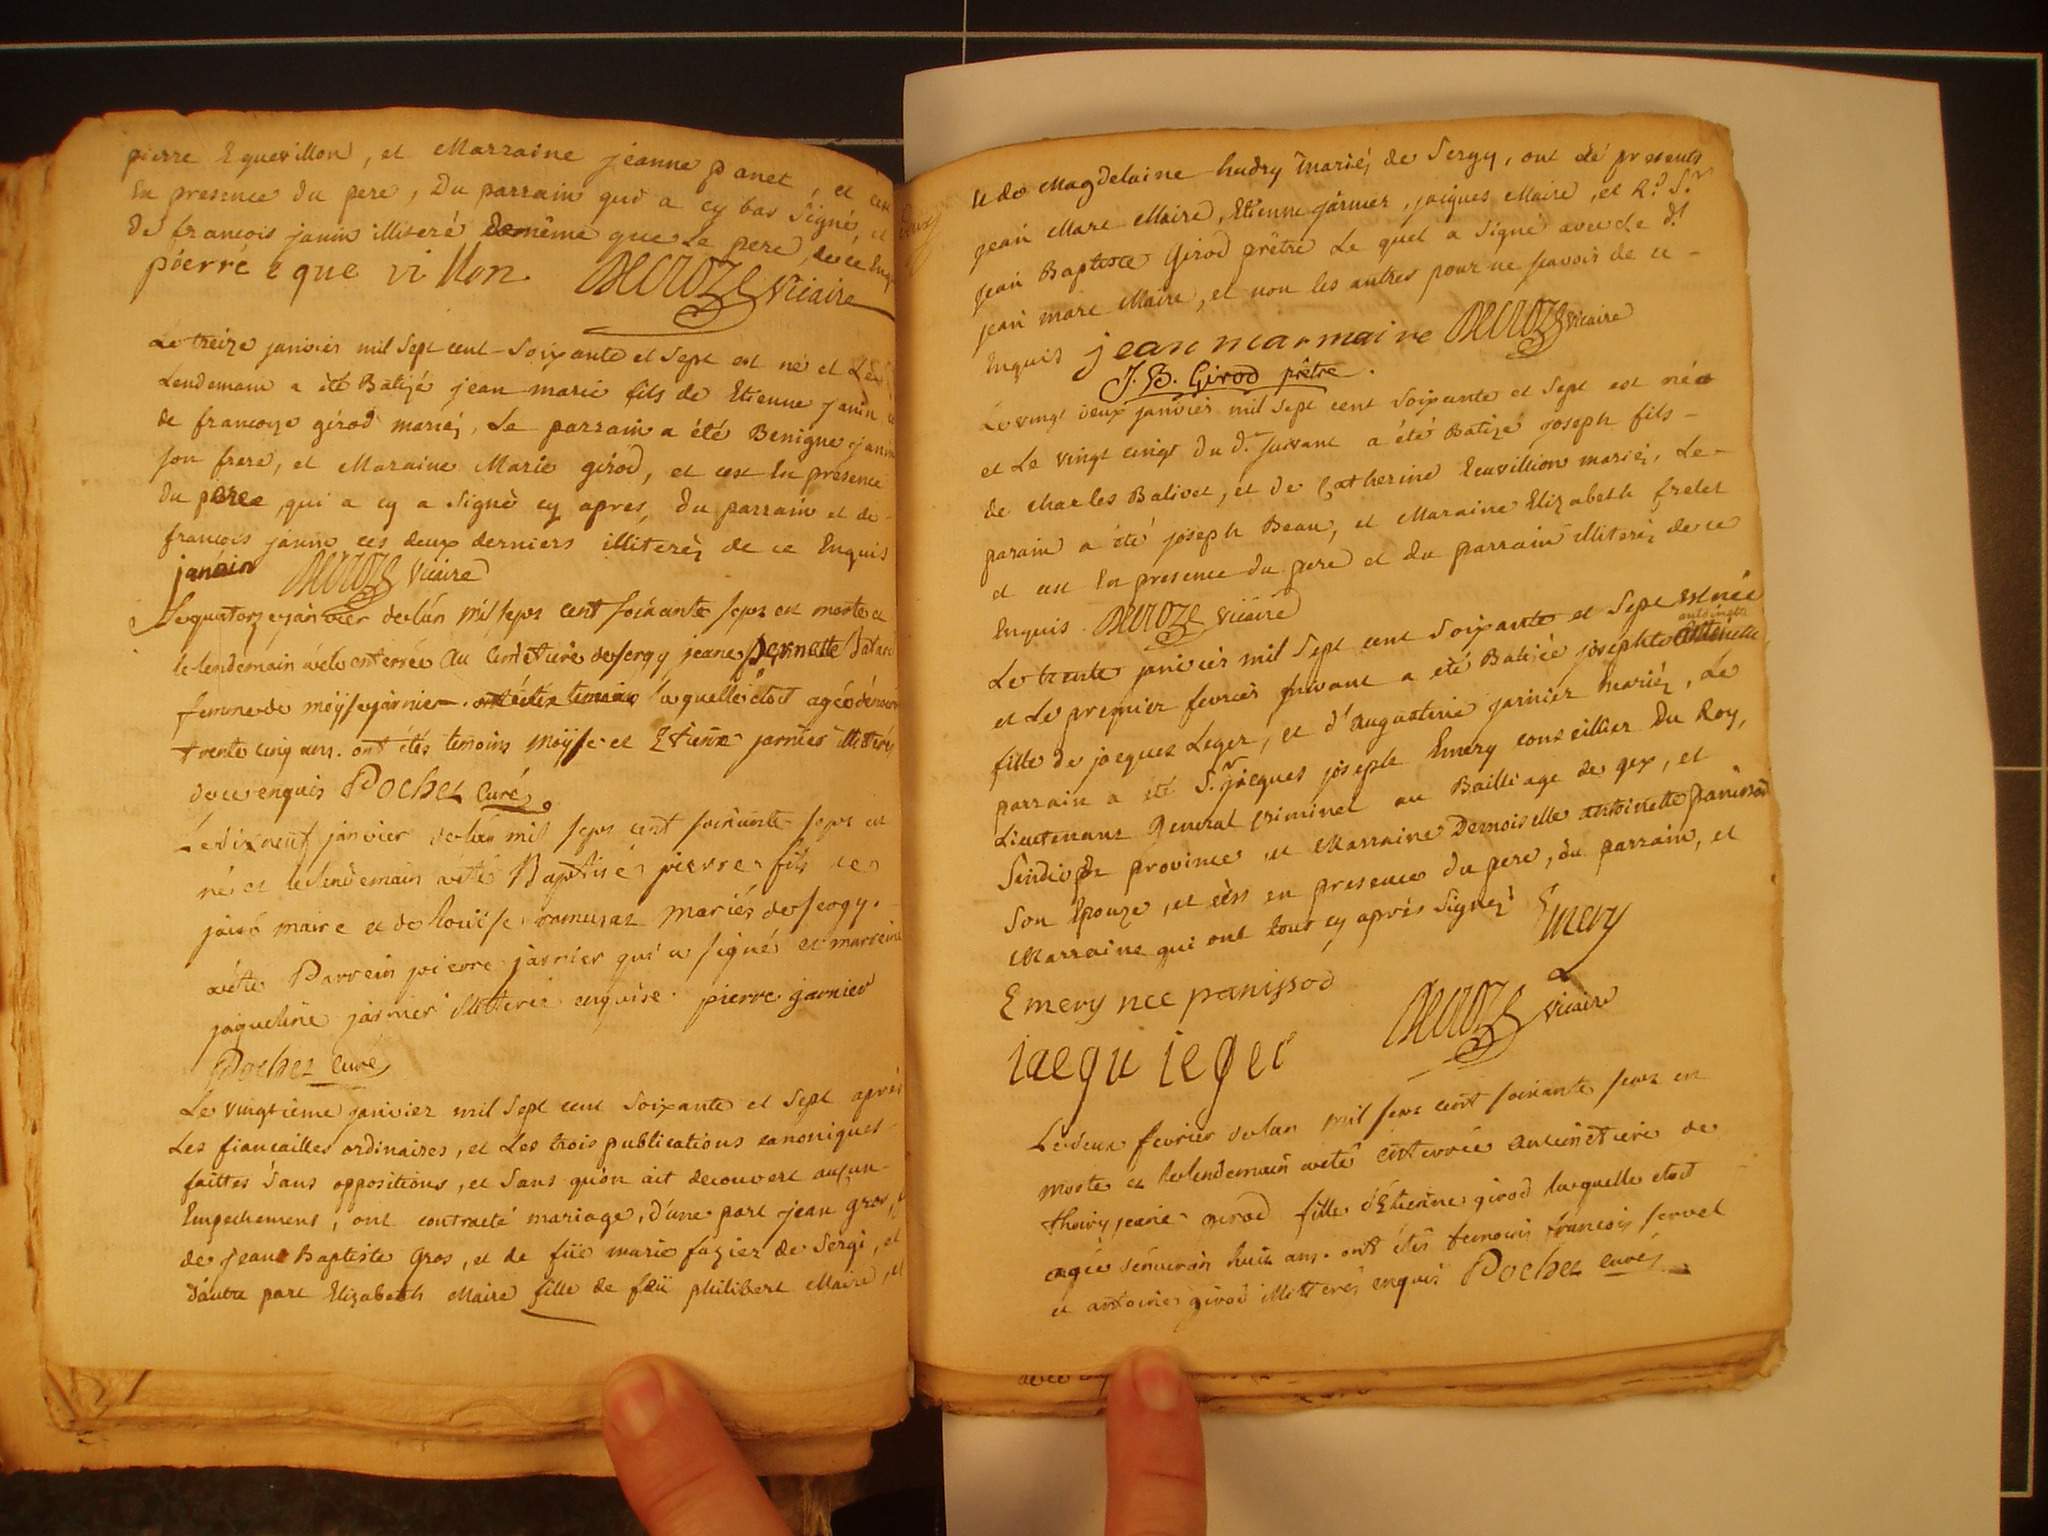 pierre Equevillon, et Marraine jeanne panet, et cest
En presence du pere, Du parrain qui a cy bas Signé, et
de francois janin illiteré de même que Le pere, de ce Enquis
pierre eque villon Decroze vicaire
Le treize janvier mil sept cent soixante et sept est né et Le
Lendemain a été Batizé jean marie fils de Etienne janin et
de francoize girod mariéz, Le parrain a été Benigne janin
son frere, et Maraine Marie girod, et cest En presence
du pere, qui a cy a Signé cy apres, du parrain et de
françois janin ces deux derniers illiteréz de ce Enquis
janain Decroze vicaire
Le quatorze janvier de lan mil sept cent soixante sept est morte et
le lendemain a eté enterrée au cimetiere de sergy jeane pernette
femme de moÿse jarnier. laquelle etoit agée denviron
trente cinq ans. ont étés temoins moÿse et Etienne jarnier illitterés
de ce enquis Pochet Curé
Le dix neuf janvier de lan mil sept cent soixante sept est
né et le lendemain a eté Baptisé pierre fils de
maire et de Louise ramusat mariés de sergy.
a eté Parrein pierre jarnier qui a signé et marreine
jaqueline jarnier illiterée enquise. pierre garnier
Pochet Curé
Le vingtieme janvier mil sept cent soixante et sept après
Les fiancailles ordinaires, et Les trois publications canoniques
faittes sans oppositions, et sans qu'on ait decouvert aucun
Empechement, ont contracté mariage, d'une part jean gros,
de jean Baptiste Gros, et de füe marie fazier de Sergi, et
d'autre part Elizabeth Maire fille de feü philibert Maire, et
de Magdelaine hudry mariéz de Sergy, ont été presents
jean Marc Maire, Etienne jarnier, jacques Maire, et R.d S.r
jean Baptiste Girod prêtre Le quel a signé avec le d.t
jean marc Maire, et non les autres pour ne scavoir de ce
Enquis jean mar maire Decroze vicaire
J. B. Girod prêtre.
Le vingt deux janvier mil sept cent soixante et sept est né
et Le vingt cinq du d.t suivant a été Batizé joseph fils
de Charles Balivet, et de Catherine Ecuvillion mariéz, Le
parain a été joseph Beau, et Maraine Elizabeth frelet
et cest En presence du pere et du parrain illiteréz de ce
Enquis Decroze vicaire
Le trente janvier mil sept cent soixante et sept est née
et Le premier fevrier suivant a été Batizée josephte
fille de jacques Leger, et d'augustine jarnier mariéz, Le
parrain a été S.r jacques joseph Emery conseillier Du Roy,
Lieutenant General Criminel au Bailliage de gex, et
Sindic de province et Marraine Demoiselle antoinette panissod
Son Epouze, et cest en presence du pere, du parrain, et
Marraine qui ont tout cy aprés Signéz Emery
Emery nee panissod
iacqu leger Decroze vicaire
Le deux fevrier de lan mil sept cent soixante sept est
morte et le lendemain a eté enterrée au cimetiere de
thoiry jeane girod fille d'Etienne girod laquelle etoit
agée denviron huit ans. ont étés temoins francois servet
et antoine girod illitterés enquis Pochet Curé